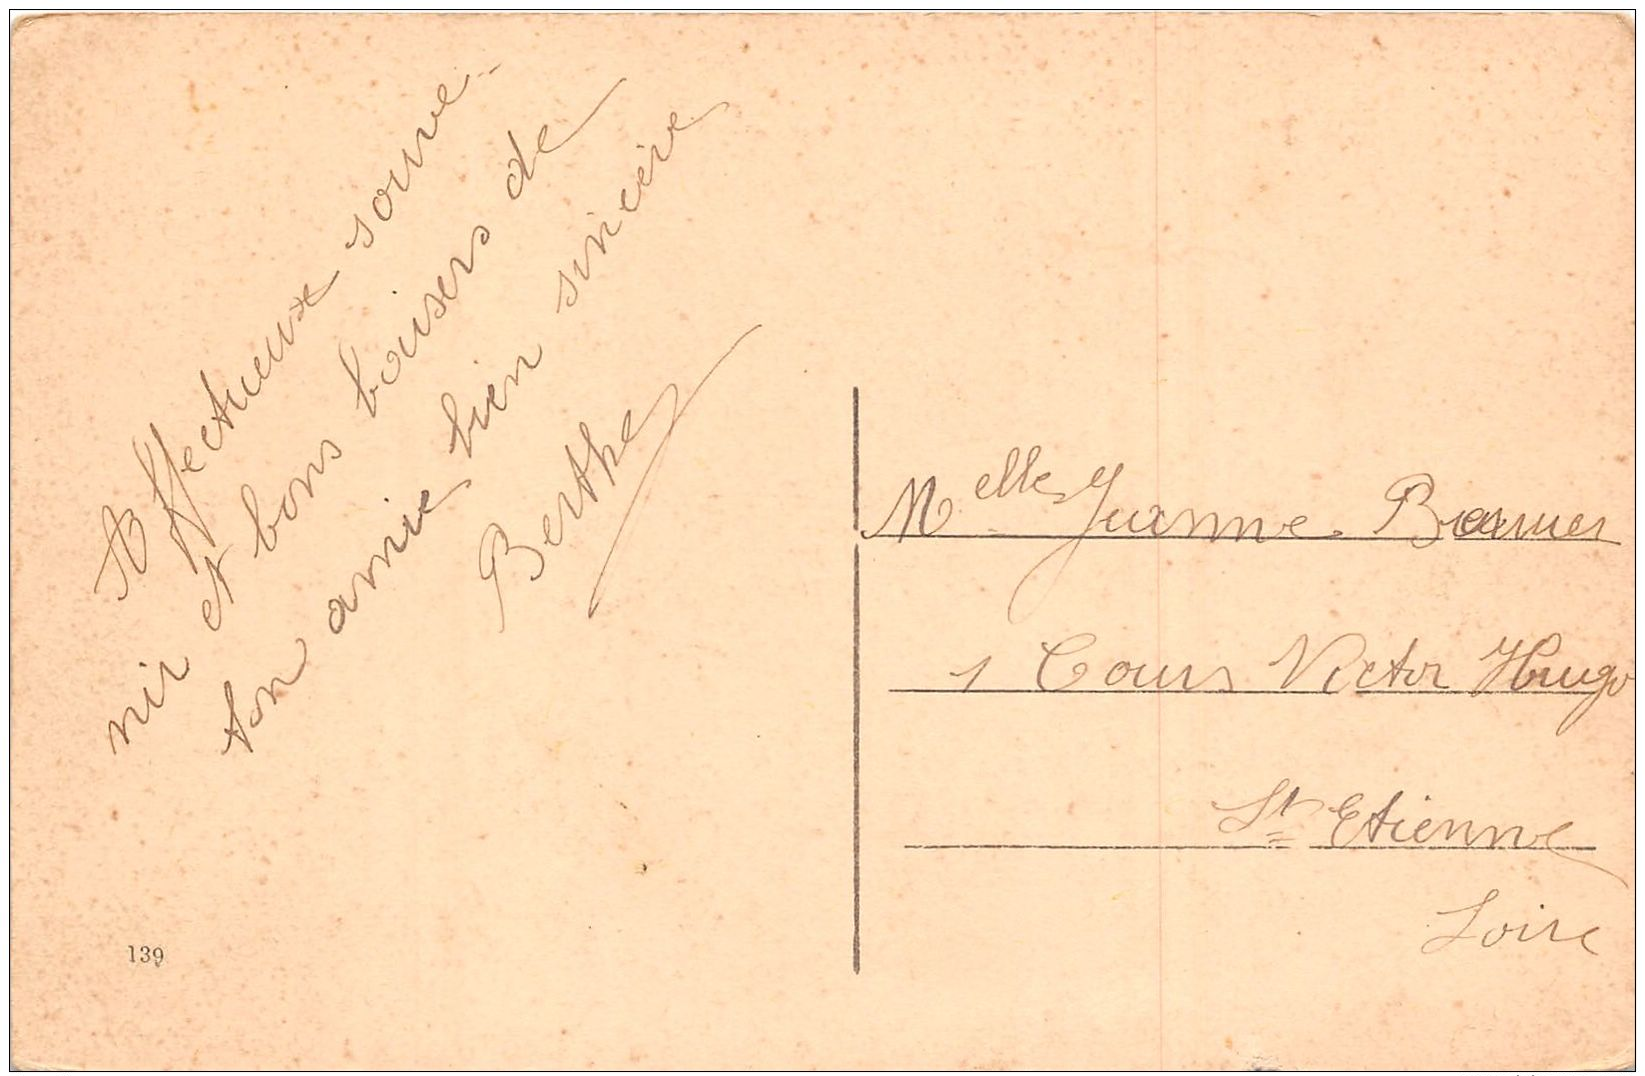 Affectueux souve-
nir et bons baisers de
ton amie bien sincère
Berthe
Melle Jeanne
1 Cours Victor Hugo
St Etienne
Loire
139